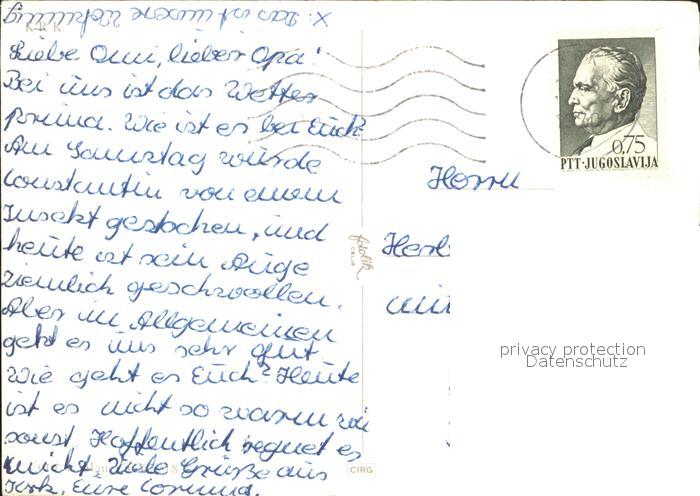 X: Das ist unsere Wohnung
KRK
Liebe Omi, lieber Opa!
Bei uns ist das Wetter
prima. Wie ist es bei Euch?
Am Samstag wurde
Constantin von einem
Insekt gestochen, und
heute ist sein Auge
ziemlich geschwollen.
Aber im Allgemeinen
geht es uns sehr gut.
Wie geht es Euch? Heute
ist es nicht so warm wie
sonst. Hoffentlich regnet es
nicht. Viele Grüße aus
Krk, Eure Corinna.
fotolik
CELJE
CIRG
0,75
PTT·JUGOSLAVIJA
Herrn
privacy protection
Datenschutz